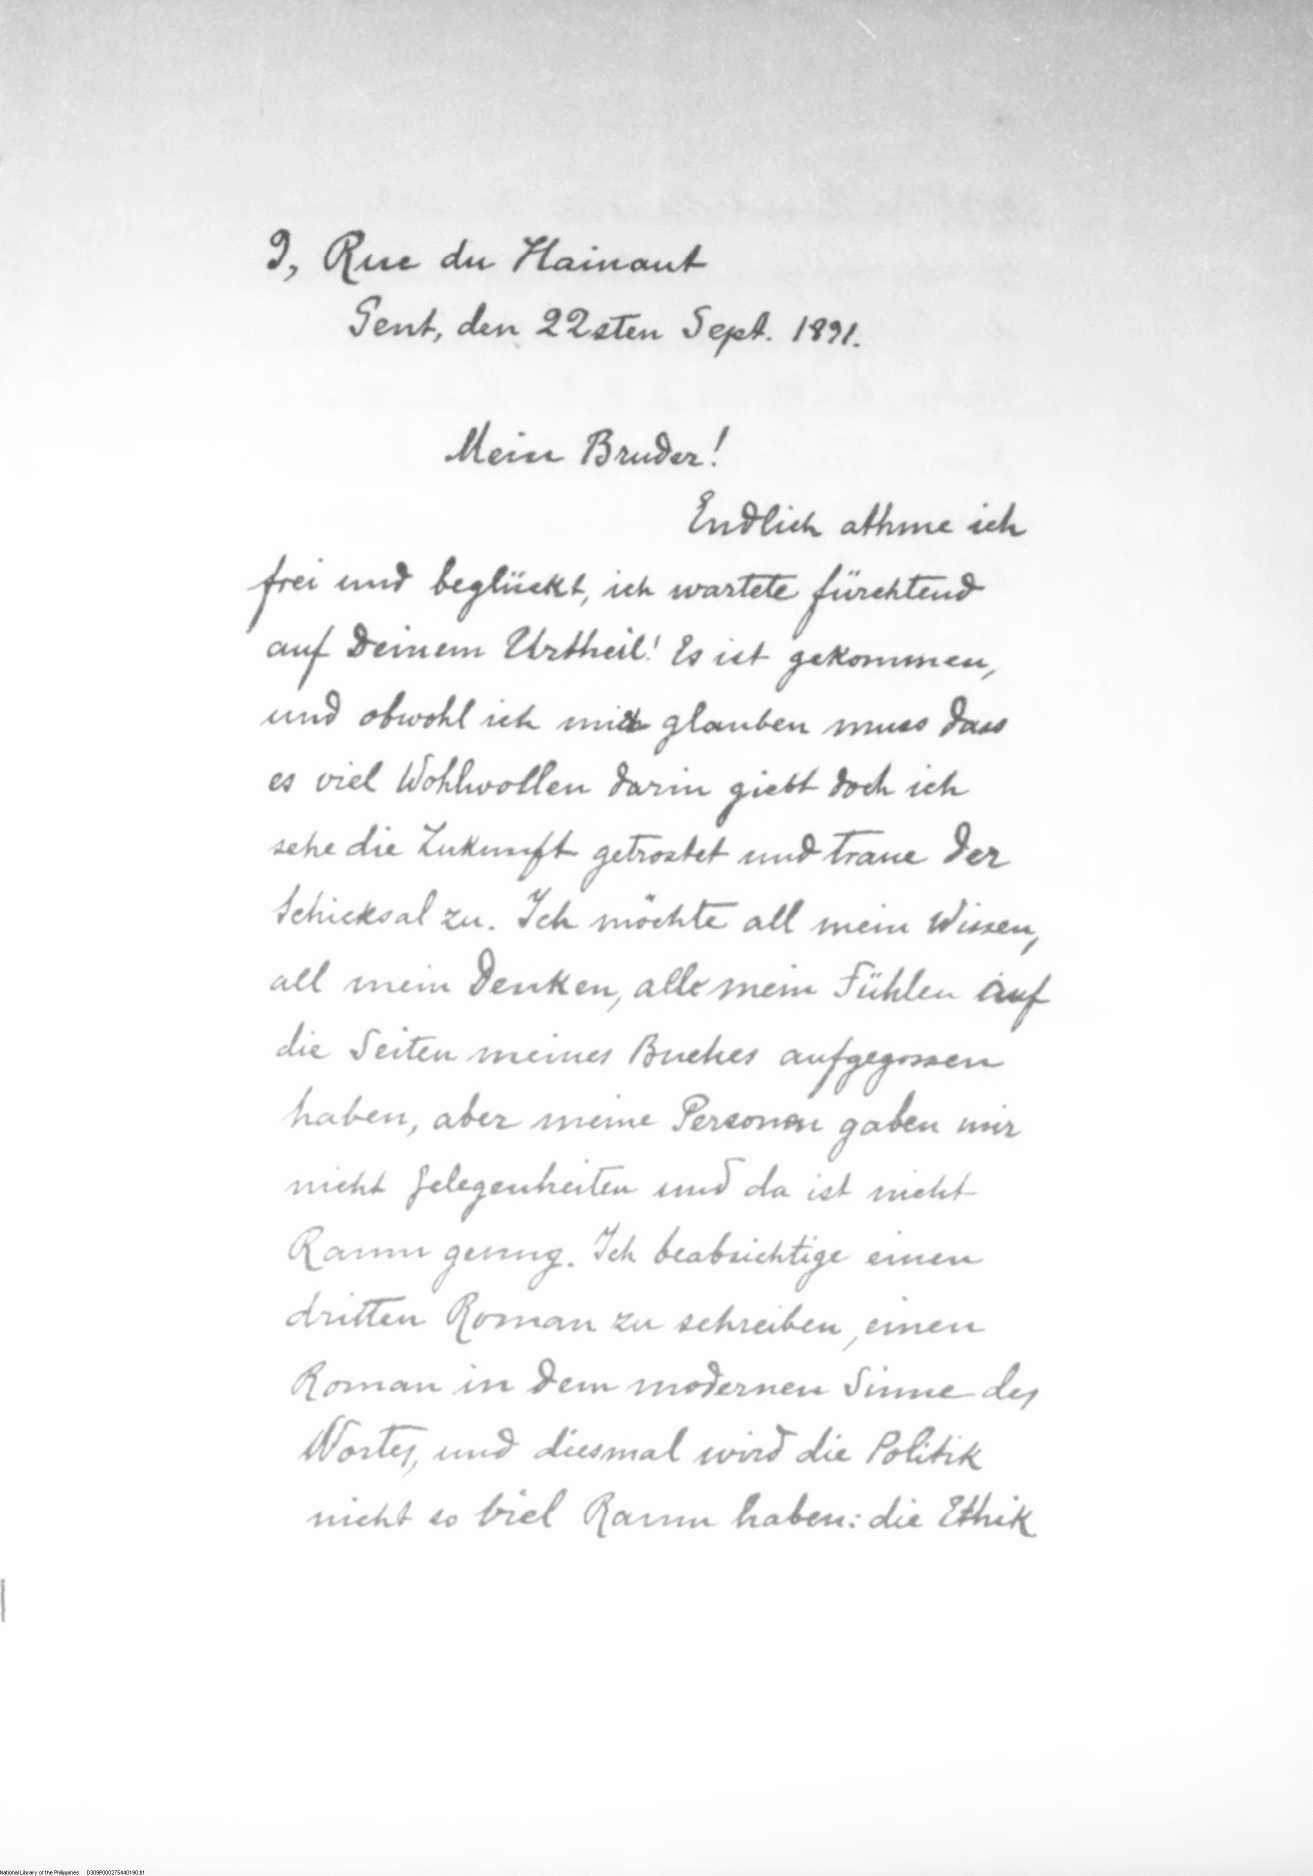 9, Rue du Hainaut
Gent, den 22sten Sept. 1891.
Mein Bruder!
Endlich athme ich
frei und beglückt, ich wartete fürchtend
auf Deinem Urtheil! Es ist gekommen,
und obwohl ich mich glauben muss dass
es viel Wohlwollen darin giebt doch ich
sehe die Zukunft getrostet und traue der
Schicksal zu. Ich möchte all mein Wissen,
all mein Denken, alle mein Fühlen auf
die Seiten meines Buches aufgegossen
haben, aber meine Personen gaben mir
nicht Gelegenheiten und da ist nicht
Raum genug. Ich beabsichtige einen
dritten Roman zu schreiben, einen
Roman in dem modernen Sinne des
Wortes, und diesmal wird die Politik
nicht so viel Raum haben: die Ethik
National Library of the Philippines D309P000275440190.tif